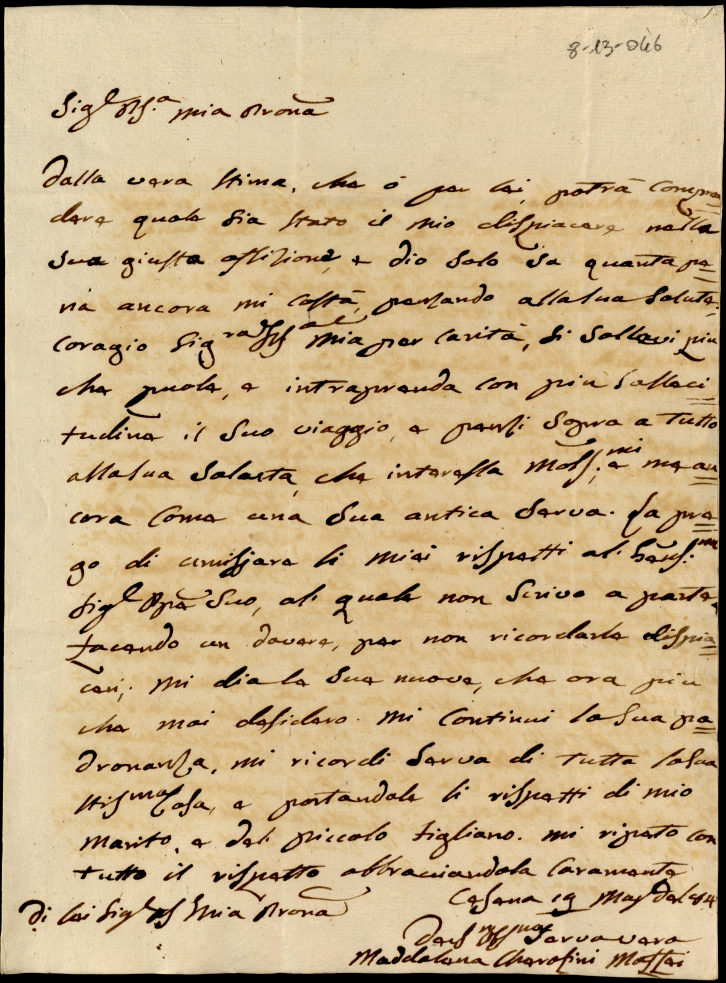 8-13-046
Sig.ª mia Prona
dalla vera stima, che ò per lei, potrà compren=
dere quale sia stato il mio dispiacere nella
sua giusta aflizione, e dio solo sa quanta pe=
na ancora mi costa, pensando alla sua salute.
coragio Sigra mia per carità, si sollevi piu
che puole, e intraprenda con piu solleci=
tudine il suo viaggio, e pensi sopra a tutto
alla sua che interessa e me an=
cora come una sua antica serva. La pre=
go di umigliare li miei rispetti al
Sigl suo, al quale non scrivo a parte,
facendo un dovere, per non ricordarle dispia=
ceri; mi dia le sue nuove, che ora piu
che mai desidero. mi continui la sua pa=
dronanza, mi ricordi serva di tutta la sua
Stisma Casa, e portandole li rispetti di mio
marito, e del piccolo figliano. mi ripeto con
tutto il rispetto abbracciandola caramente
Cesena 19 Mag del
di lei Sigl mia Prona
serva vera
Maddalena Mattei